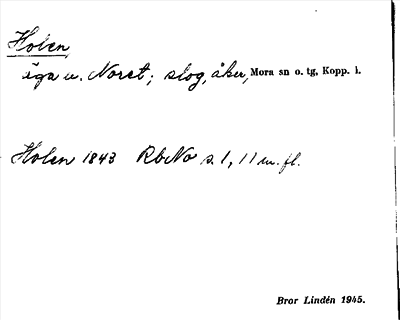 Holen,
äga u. Noret; slog, åker, Mora sn o. tg, Kopp. l.
Holen 1843 RbNo s. 1, 11 m. fl.
Bror Lindén 1945.